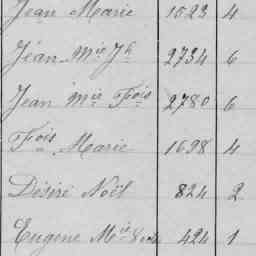 Jean Marie 1023 4
Jean Mie Jh 2734 6
Jean Mie Fois 2780 6
Fois Marie 1698 4
Désiré Noël 824 2
Eugene Mie 424 1